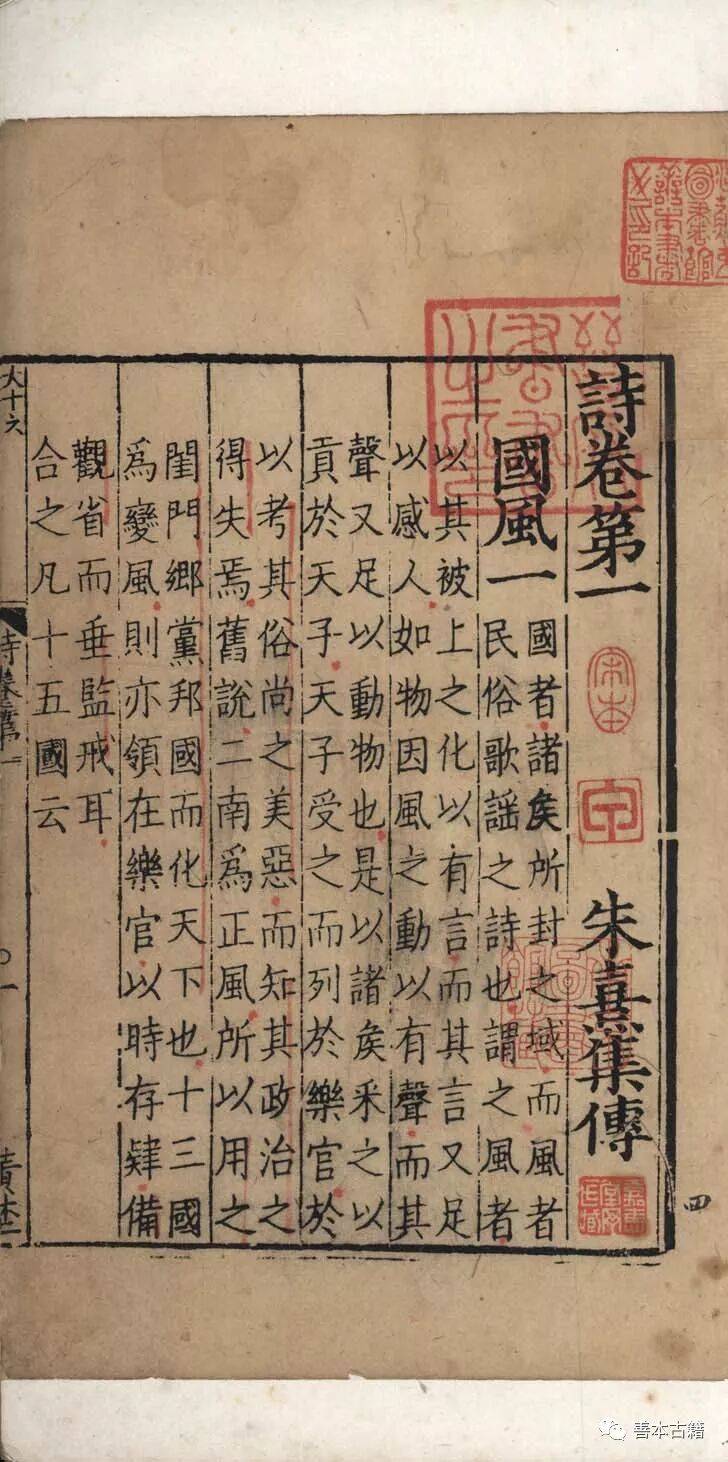 詩卷第一 朱熹集傳
宋本
甲
四
國風一
國者諸矦所封之域而風者
民俗歌謡之詩也謂之風者
以其被上之化以有言而其言又足
以感人如物因風之動以有聲而其
聲又足以動物也是以諸矦采之以
貢於天子天子受之而列於樂官於
以考其俗尚之美惡而知其政治之
得失焉舊說二南爲正風所以用之
閨門鄉黨邦國而化天下也十三國
爲變風則亦領在樂官以時存肄備
觀省而垂監戒耳
合之凡十五國云
大十六
詩卷第一
一
善本古籍